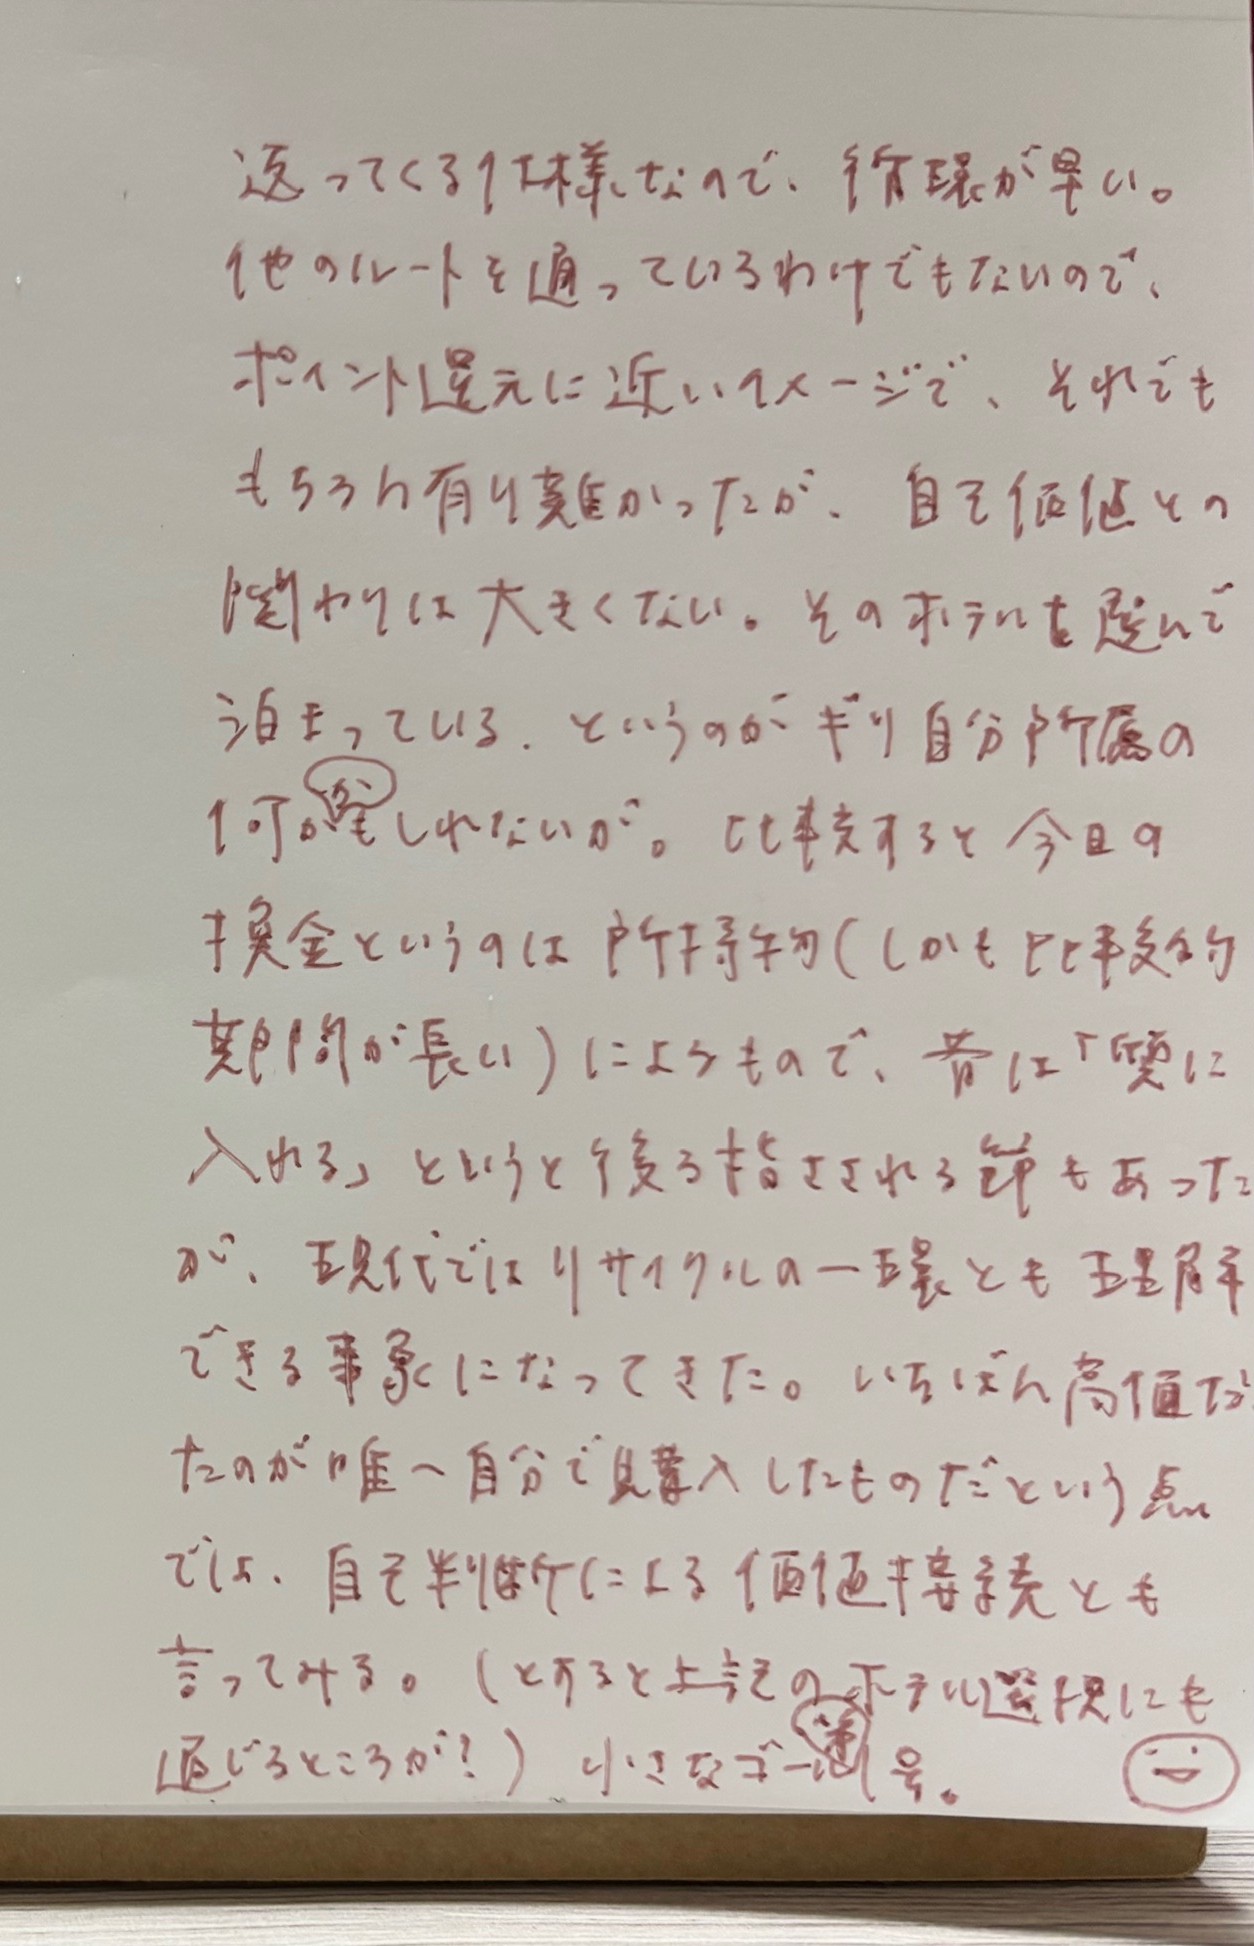 返ってくる仕様なので、循環が早い。
他のルートを通っているわけでもないので、
ポイント還元に近いイメージで、それでも
もちろん有り難かったが、自己価値との
関わりは大きくない。そのホテルを選んで
泊まっている、というのがギリ自分所属の
何かかもしれないが。比較すると今日の
換金というのは所持物(しかも比較的
期間が長い)によるもので、昔は「質に
入れる」というと後ろ指さされる節もあった
が、現代ではリサイクルの一環とも理解
できる事象になってきた。いちばん高値だっ
たのが唯一自分で購入したものだという点
では、自己判断による価値接続とも
言ってみる。(とすると上記のホテル選択にも
通じるところが?) 小さなゴール 号。